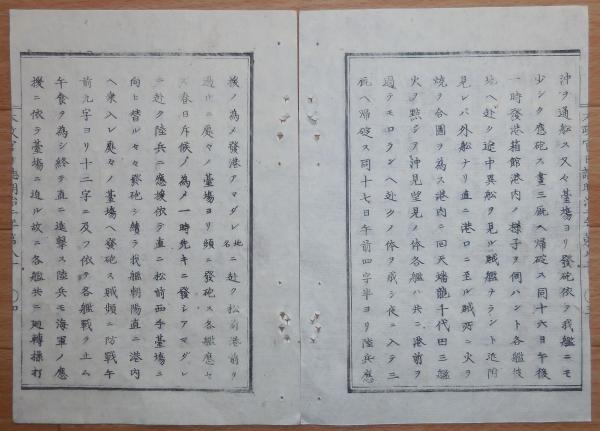 沖ヲ通船ス又々臺場ヨリ發砲依テ我艦ニモ
少シク應砲ス晝三厩ヘ帰碇ス同十六日午後
一時發港箱館港内ノ様子ヲ伺ハント各艦彼
地ヘ赴ク途中異船ヲ見ル賊艦ナラント近附
見レバ外舶ナリ直ニ港口ニ至ル賊所ニ火ヲ
焼ヲ合圖ヲ為ス港内ニ回天蟠龍千代田三艦
火ヲ點シ沖見望見ノ体各艦ハ共ニ港前ヲ
過テモロランヘ赴クノ体ヲ成シ夜ニ入テ三
厩ヘ帰碇ス同十七日午前四字半ヨリ陸兵應
援ノ為メ發港アマダレ地名ニ赴ク松前港前ヲ
過ルニ處々ノ臺場ヨリ頻ニ發砲ス各艦應セ
ス春日斥候ノ為メ一時先キニ發シアマダレ
ニ赴ク陸兵ニ應援依テ直ニ松前西手臺場ニ
向ヒ替ル々々發砲シ續テ我艦朝陽直ニ港内
ヘ乗入レ處々ノ臺場ヘ發砲ス賊頻ニ防戦午
前九字ヨリ十二字ニ及フ依テ各艦戦ヲ止ム
午食ヲ為シ終テ直ニ進撃ス陸兵モ海軍ノ應
援ニ依テ臺場ニ迫ル故ニ各艦共ニ廻轉操打